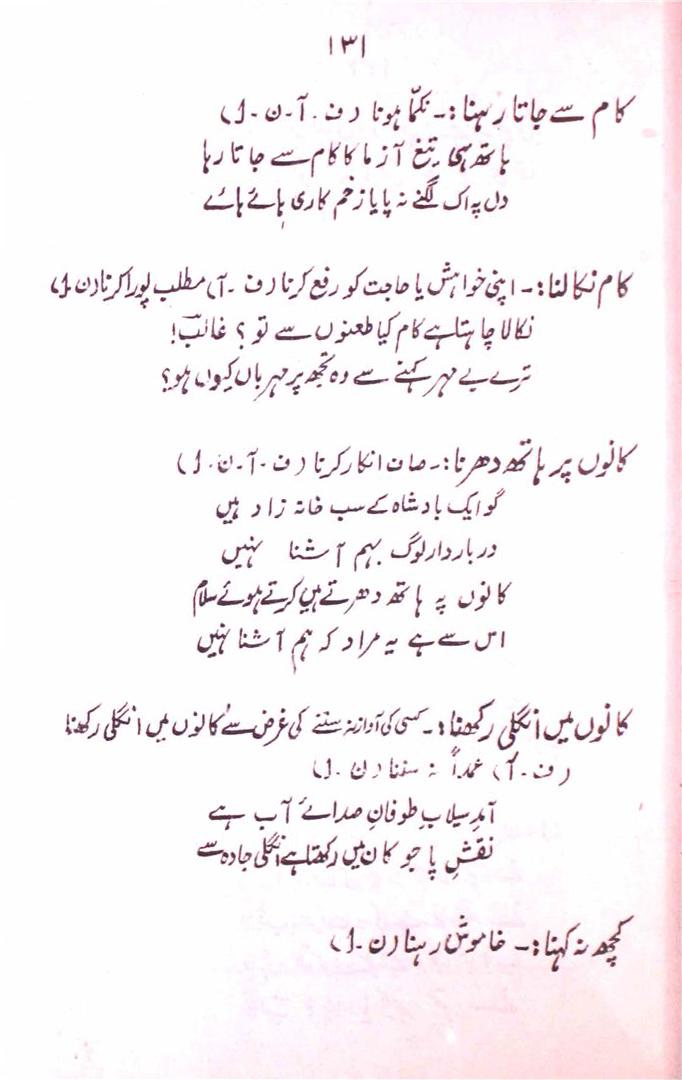 ۱۳۱
کام سے جاتا رہنا:۔ نکمّا ہونا (ف۔ آ۔ ن۔ ل)
ہاتھ ہی تیغ آزما کا کام سے جاتا رہا
دل پہ اک لگنے نہ پایا زخم کاری ہائے ہائے
کام نکالنا:۔ اپنی خواہش یا حاجت کو رفع کرنا (ف۔ آ) مطلب پورا کرنا (ن۔ ل)
نکالا چاہتا ہے کام کیا طعنوں سے تو؟ غالبؔ!
ترے بے مہر کہنے سے وہ تجھ پر مہرباں کیوں ہو؟
کانوں پر ہاتھ دھرنا:۔ صاف انکار کرنا (ف۔ آ۔ ن۔ ل)
گو ایک بادشاہ کے سب خانہ زاد ہیں
درباردار لوگ بہم آشنا نہیں
کانوں پہ ہاتھ دھرتے ہیں کرتے ہوئے سلام
اس سے ہے یہ مراد کہ ہم آشنا نہیں
کانوں میں انگلی رکھنا:۔ کسی کی آواز نہ سننے کی غرض سے کانوں میں انگلی رکھنا
(ف۔ آ) عمداً نہ سننا (ن۔ ل)
آمدِ سیلابِ طوفانِ صدائے آب ہے
نقشِ پا جو کان میں رکھتا ہے انگلی جادہ سے
کچھ نہ کہنا:۔ خاموش رہنا (ن۔ ل)